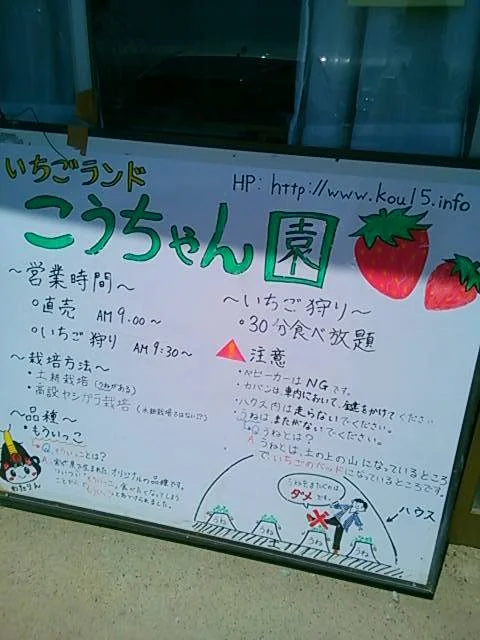 いちごランド
HP: http://www.kou15.info
こうちゃん園
～営業時間～
・直売 AM 9:00～
・いちご狩り AM 9:30～
～栽培方法～
・土耕栽培(うねがある)
・高設ヤシガラ栽培(水耕栽培ではないです)
～品種～
・もういっこ
Q.もういっことは?
A.宮城県で生まれたオリジナルの品種です。
ついつい「もう1コ」食べたくなってしまう
ことから もういっこ と名づけられました。
わたりん
～いちご狩り～
・30分食べ放題
注意
・ベビーカーはNGです。
・カバンは車内において、鍵をかけてください
・ハウス内は走らないでください。
・うねは、またがないでください。
Q.うねとは?
A.うねとは、土の上の山になっているところ
で、いちごのベッドになっているところです。
うねをまたぐのは
ダメです。
ハウス
うね
うね
うね
うね
土